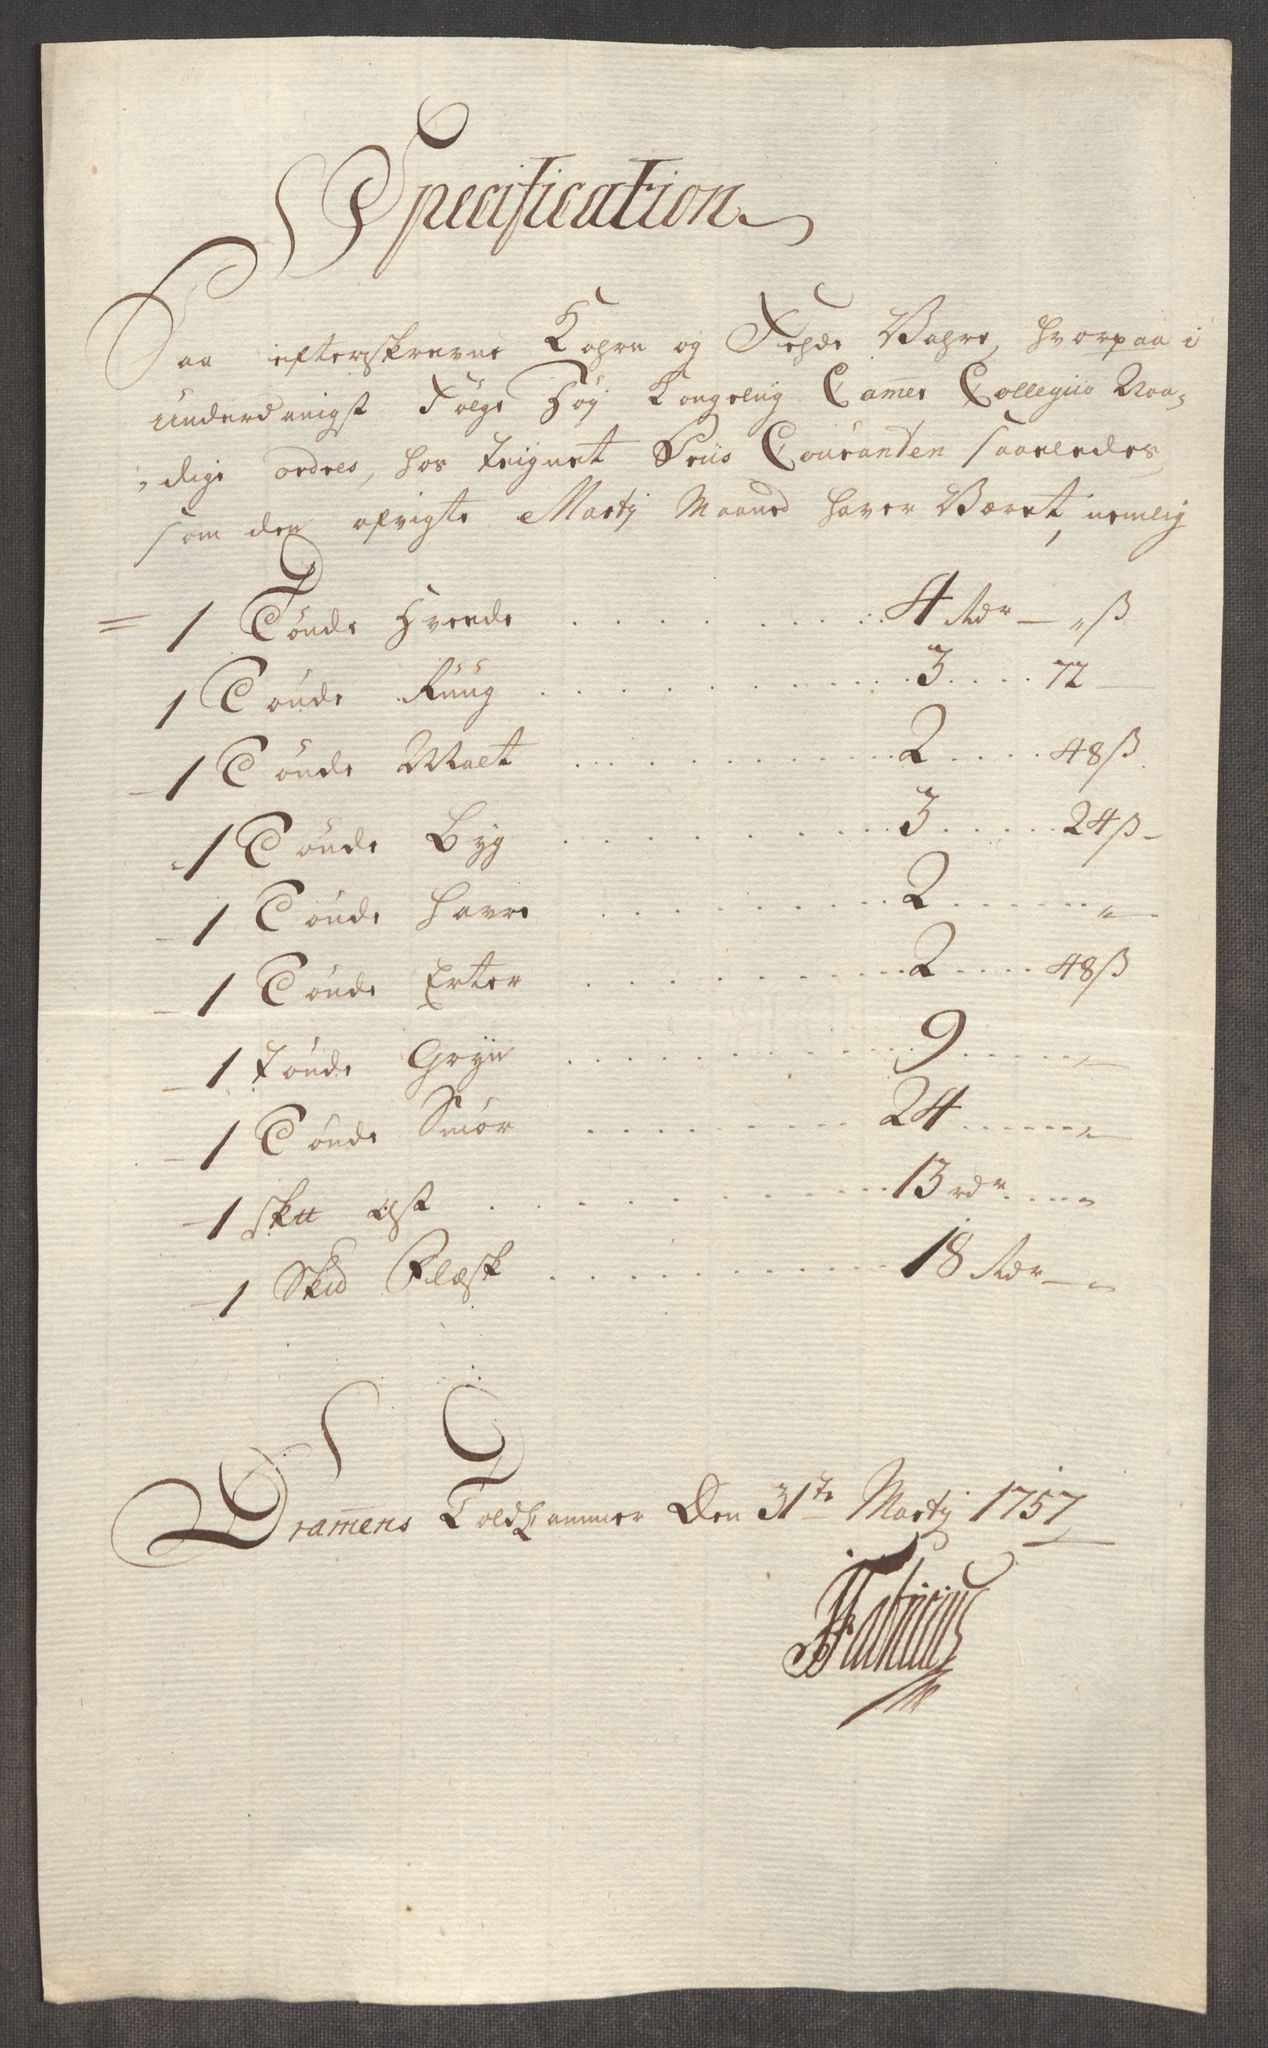 Specification
Paa efterskrevne Kohrn og Fehde Vahre, hvorpaa i
underdanigst Følge Høy Kongelig Camer Collegiio Naa-
dige ordres, hos teignet Priis Couranten saaledes,
som den afvigte Martij Maaned haver Været, nemlig
= 1 Tønde Hvede . . . . . 4 Rdr — „ ß
1 Tønde Ruug . . . . . 3 . . . . 72 —
— 1 Tønde Malt . . . . . 2 . . . . 48 ß
1 Tønde Byg . . . . . 3 . . . . 24 ß —
— 1 Tønde Havre . . . . . 2 . . . . „ —
— 1 Tønde Erter . . . . . 2 . . . . 48 ß
— 1 Tønde Gryn . . . . . 9 . . . . „ —
— 1 Tønde Smør . . . . . 24 . . . . „ —
— 1 Sktt Ost . . . . . 13 rdr . . . . „
— 1 Skid Flæsk . . . . . 18 Rdr — „
Dramens Toldkammer Den 31te Martij 1757
Fabricius